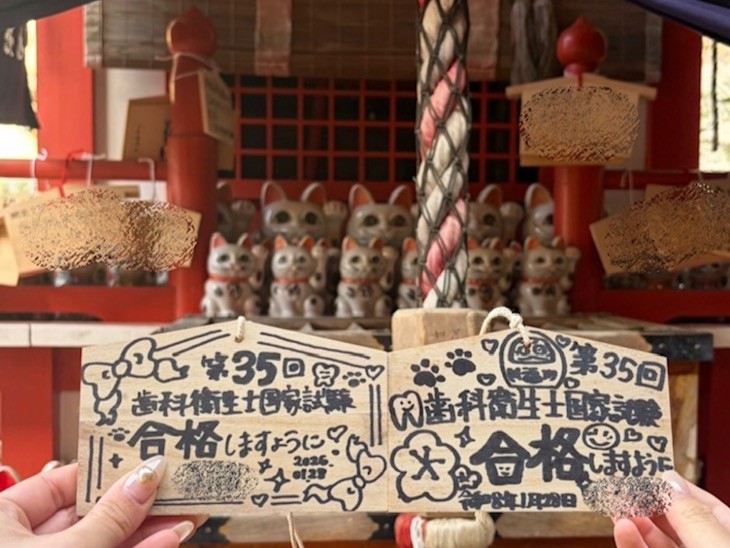 第35回
歯科衛生士国家試験
合格しますように
2026.
01.28
第35回
歯科衛生士国家試験
合格しますように
令和8年1月28日